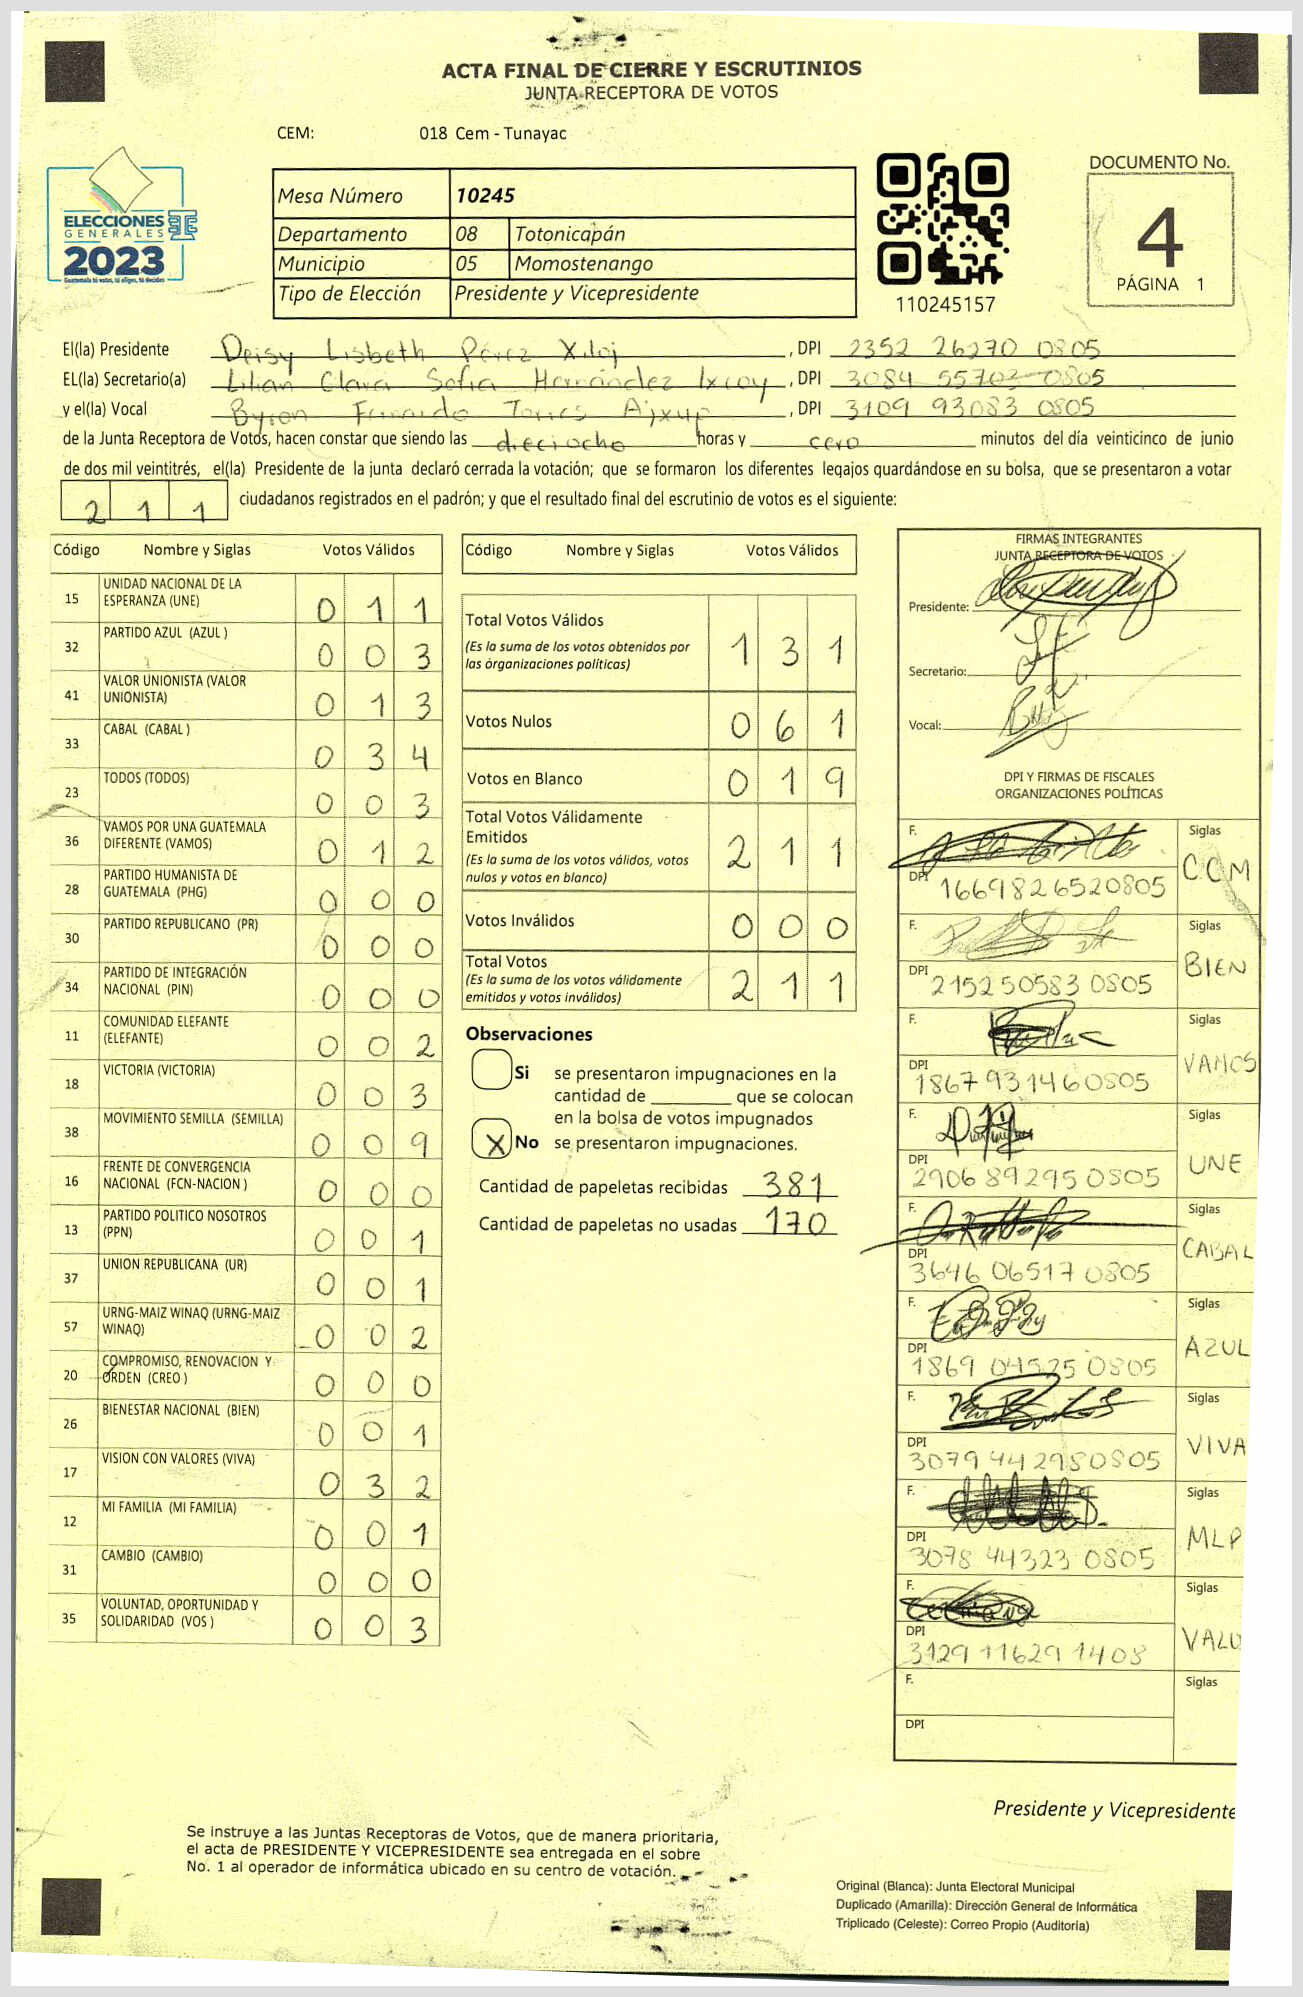 ACTA FINAL DE CIERRE Y ESCRUTINIOS
JUNTA RECEPTORA DE VOTOS
CEM: 018 Cem - Tunayac
ELECCIONES
GENERALES
2023
Guatemala tú votas, tú eliges, tú decides
Mesa Número 10245
Departamento 08 Totonicapán
Municipio 05 Momostenango
Tipo de Elección Presidente y Vicepresidente
110245157
DOCUMENTO No.
4
PÁGINA 1
El(la) Presidente Deisy Lisbeth Pérez Xiloj, DPI 2352 26270 0805
EL(la) Secretario(a) Lilian Clara Sofia Hernández Ixcoy, DPI 3084 55703 0805
y el(la) Vocal Byron Fernando Torres Ajxup, DPI 3109 93083 0805
de la Junta Receptora de Votos, hacen constar que siendo las dieciocho horas y cero minutos del día veinticinco de junio
de dos mil veintitrés, el(la) Presidente de la junta declaró cerrada la votación; que se formaron los diferentes legajos guardándose en su bolsa, que se presentaron a votar
2 1 1 ciudadanos registrados en el padrón; y que el resultado final del escrutinio de votos es el siguiente:
Código Nombre y Siglas Votos Válidos
15 UNIDAD NACIONAL DE LA
ESPERANZA (UNE) 0 1 1
32 PARTIDO AZUL (AZUL ) 0 0 3
41 VALOR UNIONISTA (VALOR
UNIONISTA) 0 1 3
33 CABAL (CABAL ) 0 3 4
23 TODOS (TODOS) 0 0 3
36 VAMOS POR UNA GUATEMALA
DIFERENTE (VAMOS) 0 1 2
28 PARTIDO HUMANISTA DE
GUATEMALA (PHG) 0 0 0
30 PARTIDO REPUBLICANO (PR) 0 0 0
34 PARTIDO DE INTEGRACIÓN
NACIONAL (PIN) 0 0 0
11 COMUNIDAD ELEFANTE
(ELEFANTE) 0 0 2
18 VICTORIA (VICTORIA) 0 0 3
38 MOVIMIENTO SEMILLA (SEMILLA) 0 0 9
16 FRENTE DE CONVERGENCIA
NACIONAL (FCN-NACION ) 0 0 0
13 PARTIDO POLITICO NOSOTROS
(PPN) 0 0 1
37 UNION REPUBLICANA (UR) 0 0 1
57 URNG-MAIZ WINAQ (URNG-MAIZ
WINAQ) 0 0 2
20 COMPROMISO, RENOVACION Y
ORDEN (CREO ) 0 0 0
26 BIENESTAR NACIONAL (BIEN) 0 0 1
17 VISION CON VALORES (VIVA) 0 3 2
12 MI FAMILIA (MI FAMILIA) 0 0 1
31 CAMBIO (CAMBIO) 0 0 0
35 VOLUNTAD, OPORTUNIDAD Y
SOLIDARIDAD (VOS ) 0 0 3
Código Nombre y Siglas Votos Válidos
Total Votos Válidos
(Es la suma de los votos obtenidos por
las organizaciones políticas) 1 3 1
Votos Nulos 0 6 1
Votos en Blanco 0 1 9
Total Votos Válidamente
Emitidos
(Es la suma de los votos válidos, votos
nulos y votos en blanco) 2 1 1
Votos Inválidos 0 0 0
Total Votos
(Es la suma de los votos válidamente
emitidos y votos inválidos) 2 1 1
Observaciones
Si se presentaron impugnaciones en la
cantidad de ________ que se colocan
en la bolsa de votos impugnados
X No se presentaron impugnaciones.
Cantidad de papeletas recibidas 381
Cantidad de papeletas no usadas 170
FIRMAS INTEGRANTES
JUNTA RECEPTORA DE VOTOS
Presidente:
Secretario:
Vocal:
DPI Y FIRMAS DE FISCALES
ORGANIZACIONES POLÍTICAS
F. Siglas
DPI 1669826520805 CCM
F. Siglas
DPI 2152505830805 BIEN
F. Siglas
DPI 1867931460805 VAMOS
F. Siglas
DPI 2906892950805 UNE
F. Siglas
DPI 3646065170805 CABAL
F. Siglas
DPI 1869045250805 AZUL
F. Siglas
DPI 3079442980805 VIVA
F. Siglas
DPI 3078443230805 MLP
F. Siglas
DPI 3129116291408 VALO
F. Siglas
DPI
Presidente y Vicepresidente
Se instruye a las Juntas Receptoras de Votos, que de manera prioritaria,
el acta de PRESIDENTE Y VICEPRESIDENTE sea entregada en el sobre
No. 1 al operador de informática ubicado en su centro de votación.
Original (Blanca): Junta Electoral Municipal
Duplicado (Amarilla): Dirección General de Informática
Triplicado (Celeste): Correo Propio (Auditoría)